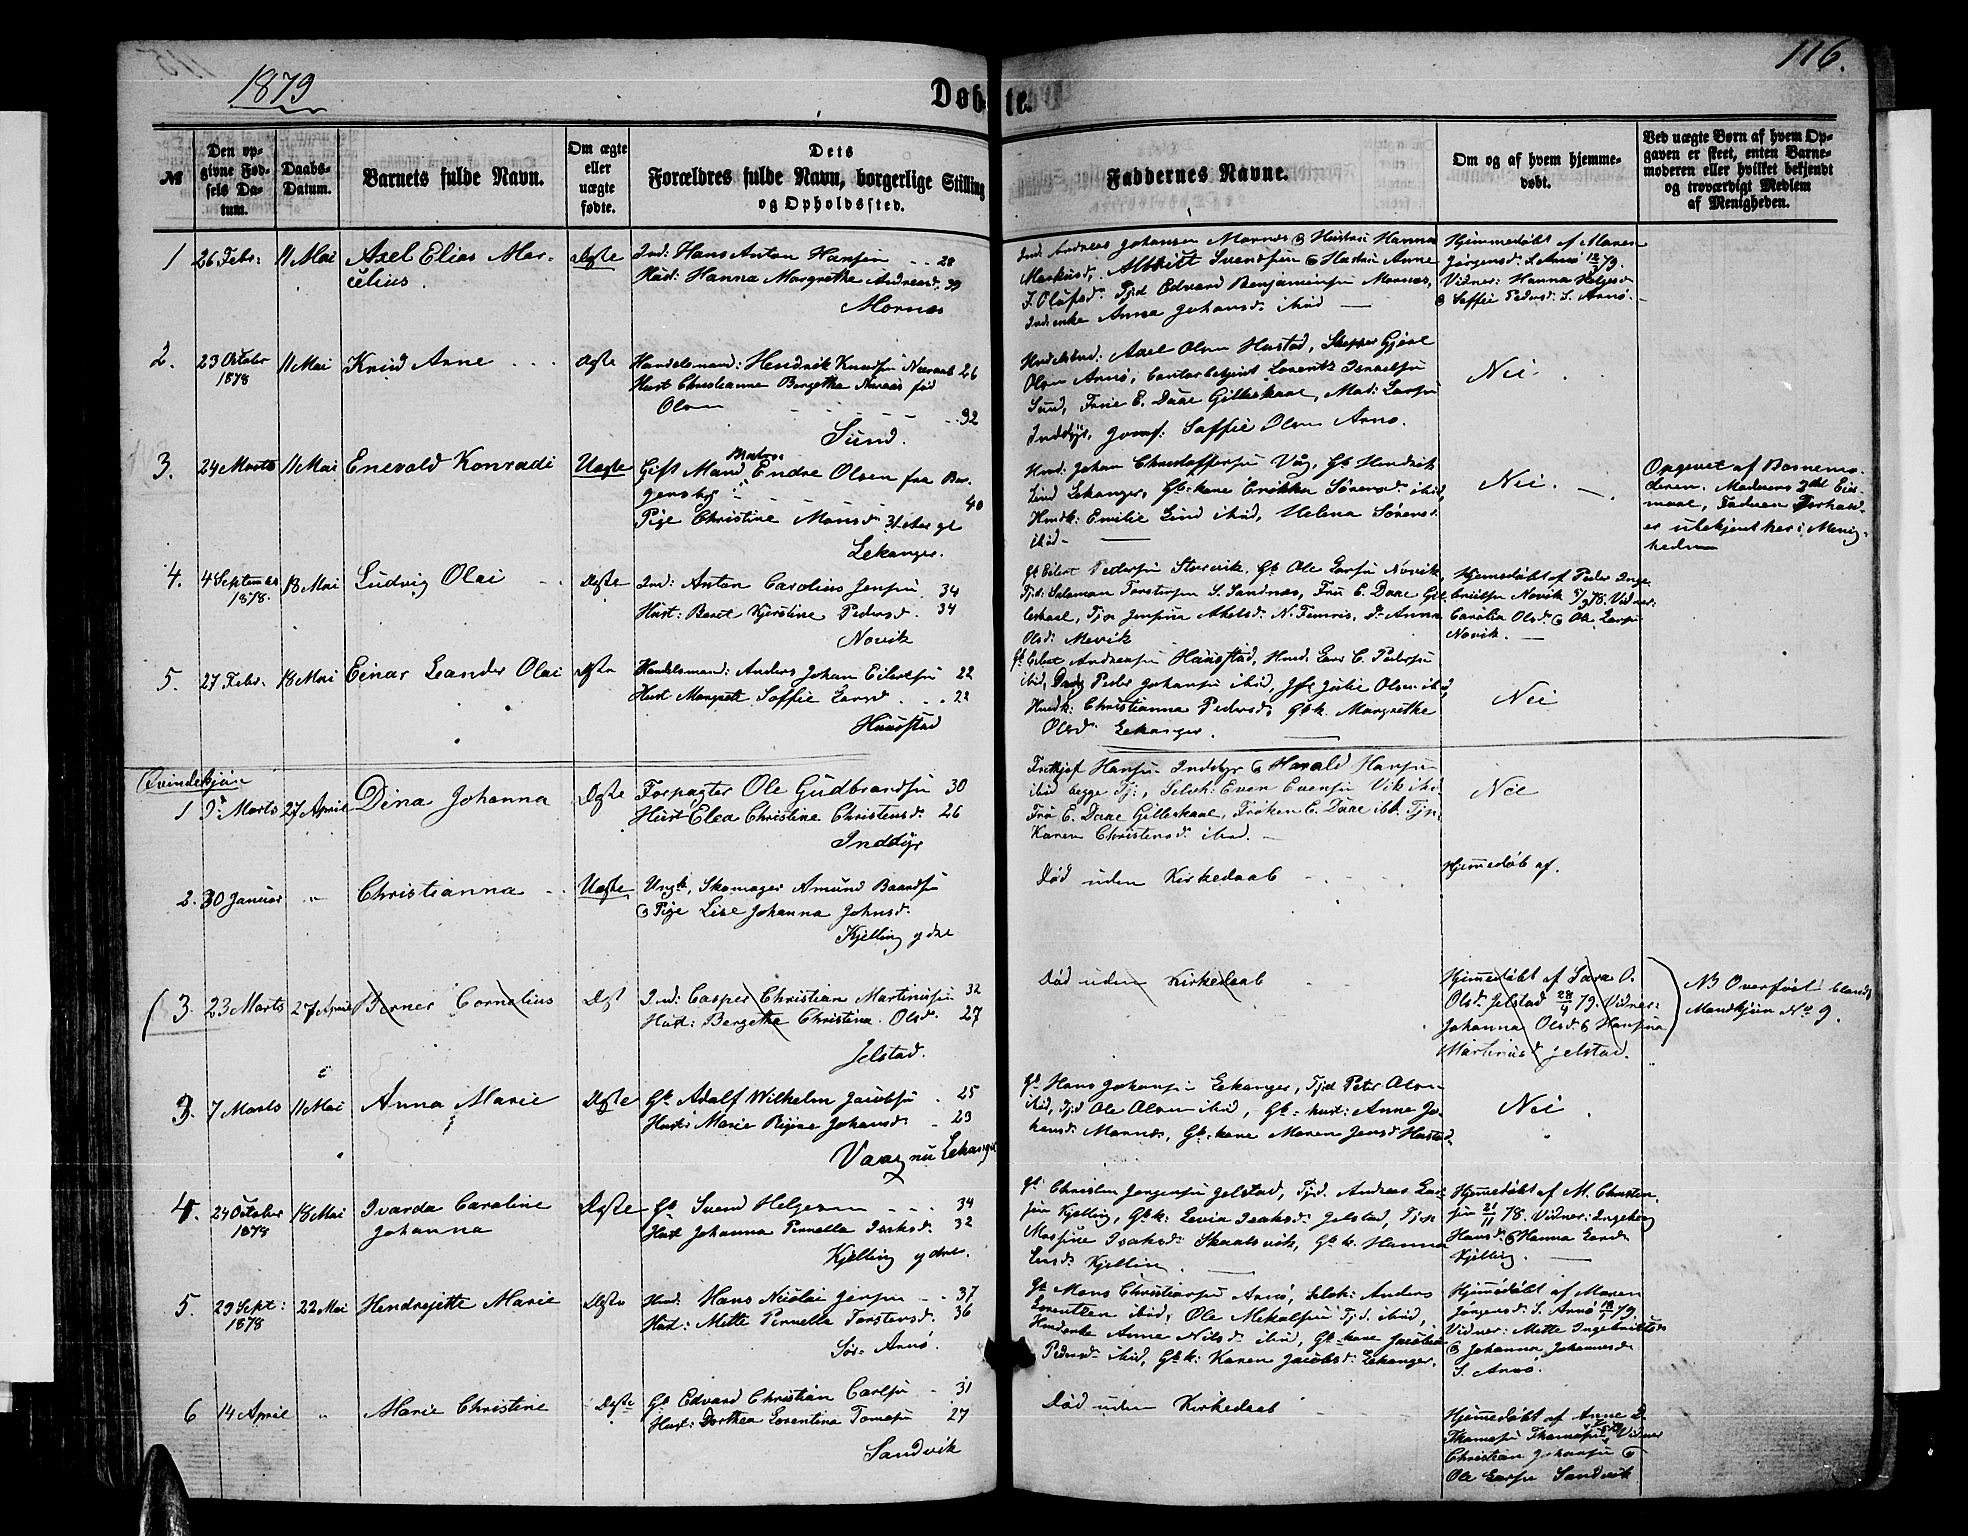 1879
Døbte.
116.
№
Den op-
givne Fød-
sels Da-
tum.
Daabs-
Datum.
Barnets fulde Navn.
Om ægte
eller
uægte
fødte.
Dets
Forældres fulde Navn, borgerlige Stilling
og Opholdssted.
Faddernes Navne.
Om og af hvem hjemme-
døbt.
Ved uægte Børn af hvem Op-
gaven er skeet, enten Barne-
moderen eller hvilket bekjendt
og troværdigt Medlem
af Menigheden.
1 26 Febr. 11 Mai Axel Elias Mar-
celius.
Ægte
Ind: Hans Anton Hansen 28
Hust: Hanna Margrethe Andreasd. 39
Mornæs
Ind: Andreas Johansen Mornæs & Hustru Hanna
Markusd, Albrikt Svendsen & Hustru Anne
J. Olufsd. Tjd Edvard Benjaminsen Mornæs,
Indenke Anna Johansd. ibid
Hjemmedøbt af Maren
Jørgensd. S. Arnø 79.
Vidner: Hanna Helgesd
& Soffie Pedersd. S. Arnø.
2. 23 October
1878
11 Mai Knud Arne
Ægte
Handelsmand: Hendrik Knudsen Næraas 26
Hust Christianne Bergitha Næraas fød
Olsen 32
Sund.
Handelsbtd: Axel Olsen Hustad, Skipper Gjert
Olsen Arnø, Contorbetjent Lorentz Israelsen
Sund, Frue E. Daae Gilleskaal, Mad: Larsen
Inddyr, Jomf: Soffie Olsen Arnø.
Nei
3. 24 Marts 11 Mai Enevold Konradi
Uægte
Gift Mand Endre Olsen fra Ber-
gensbg 40
Pige Christine Monsd. 31 Aar gl
Lekanger.
Hmd: Johan Christoffersen Våg, Gb Hendrik
Lind Lekanger, Gb.kone Erikka Sørensd ibid,
Hmdk: Emilie Lind ibid, Helena Sørensd.
ibid
Nei.
Opgivet af Barnemo-
deren. Moderens 2det Leie-
maal, Faderens Forhold
er ubekjent her i Menig-
heden
4. 4 September
1878.
18 Mai Ludvig Olai
Ægte
Ind: Anton Carolius Jensen 34
Hust: Beret Kjerstine Pedersd. 34
Novik
Gb Eilert Pedersen Storvik, Gb Ole Larsen Novik,
Tjd: Salamon Torstensen S. Sandnæs, Frue E. Daae Gil-
leskaal, Tjp Jensine Abelsd. N. Femris, Do Anna
Olsd: Mevik
Hjemmedøbt af Peder Inge-
brigtsen Novik 78. Vidner:
Carolia Olsd. & Ole Larsen
Novik.
5. 27 Febr. 18 Mai Einar Leander Olai
Ægte
Handelsmand: Anders Johan Eilertsen 22
Hust Margrete Soffie Larsd. 22
Haustad
Gb Eilert Andreasen Haustad, Hmd Lars C. Pedersen
ibid, Dreng Peder Johansen ibid, Jfr Julie Olsen ibid,
Hmdk: Christianna Pedersd, Gbk. Margrethe
Olsd: Lekanger.
Nei
Qvindekjøn
1 9de Marts 27 April Dina Johanna
Ægte
Forpagter Ole Gudbrandsen 30
Hust Elea Christine Christensd. 26
Inddyr
Fredtjof Hansen Inddyr & Harald Hansen
ibid begge Tj:, Selvk: Even Evensen Vik ibid,
Fru E. Daae Gilleskaal, Frøken C. Daae ibd. Tjp
Karen Christensd: ibid.
Nei
2. 30 Januar " Christianna
Uægte
Ungk, Skomager Amund Baardsen
& Pige Lise Johanna Johnsd.
Kjelling ydre
Død uden Kirkedaab
Hjemmedøb af.
3. 23 Marts 27 April Berner Cornelius
Ægt
Ind: Casper Christian Martinusen 32
Hust: Bergethe Christina Olsd. 27
Jelstad.
Død uden Kirkedaab
Hjemmedøbt af Sara O.
Olsd. Jelstad 79. Vidner:
Johanna Olsd. & Hansina
Martinusd Jelstad.
NB Overført blandt
Mandkjøn No 9.
3. 7 Marts 11 Mai Anna Marie
Ægte
Gb. Adolf Wilhelm Jacobsen 25
Hust: Marie Regine Johansd. 23
Vaag nu Lekanger
Gb Hans Johansen Lekanger, Tjd Peter Olsen
ibid, Tjd Ole Olsen ibid, Gb: hust: Anne Jo-
hansd: Mornæs, Gb.kone Maren Jensd Hustad
Nei.
4. 24 October
1878
18 Mai Ivarda Caroline
Johanna
Ægte
Gb Svend Helgesen 34
Hust Johanna Pernella Isaksd. 32
Kjelling ydre.
Gb Christen Jørgensen Jelstad, Tjd. Andreas Lar-
sen Kjelling, Gbk: Lovia Isaksd: Jelstad, Tjp
Massine Isaksd: Skaalsvik, Gbk. Hanna
Larsd: Kjelling.
Hjemmedøbt af M. Christen-
sen 21/11 78. Vidner: Ingeborg
Hansd. & Hanna Larsd.
Kjelling.
5. 29 Sept:
1878
22 Mai Hendrejette Marie
Ægte
Hmd: Hans Nicolai Jensen 37
Hust: Mette Pernella Torstensd. 36
Sør Arnø.
Gb Mons Christiansen Arnø, Selvk: Anders
Lorentzen ibid, Ole Mekalsen Tjd. ibid,
Hmdenke Anne Nilsd. ibid, Gb.kone Jacobia
Pedersd. ibid, Gbk: Karen Jacobsd: Lekanger.
Hjemmedøbt af Maren
Jørgensd: S. Arnø 79.
Vidner: Mette Ingebriktsd
& Johanna Johannesd.
S. Arnø.
6 14 April " Marie Christine
Ægte
Gb Edvard Christian Carlsen 31
Hust: Dorthea Lorentina Tomasen 27
Sandvik
Død uden Kirkedaab
Hjemmedøbt af Anne D.
Thomasen Vidner
Christian Johansen &
Ole Larsen Sandvik